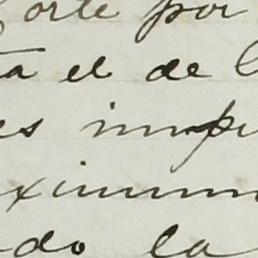 Corte por
ta el de l
es impu
ximum
do la